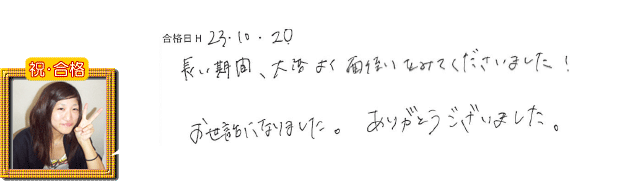 祝・合格
合格日 H 23・10・20
長い期間、大変よく面倒をみてくださいました!
お世話になりました。ありがとうございました。